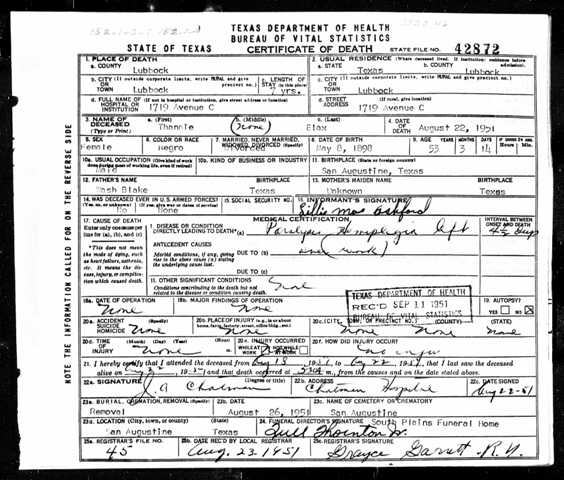 TEXAS DEPARTMENT OF HEALTH
BUREAU OF VITAL STATISTICS
STATE OF TEXAS CERTIFICATE OF DEATH STATE FILE NO. 42872
1. PLACE OF DEATH
a. COUNTY Lubbock
2. USUAL RESIDENCE (Where deceased lived. If institution: residence before admission).
a. STATE Texas b. COUNTY Lubbock
b. CITY (If outside corporate limits, write RURAL and give
OR TOWN Lubbock
c. LENGTH OF STAY (in this place) yrs.
c. CITY (If outside corporate limits, write RURAL and give precinct no.)
OR TOWN Lubbock
d. FULL NAME OF HOSPITAL OR INSTITUTION (If not in hospital or institution, give street address or location) 1719 Avenue C
d. STREET ADDRESS (If rural, give location) 1719 Avenue C
3. NAME OF DECEASED (Type or Print) a. (First) b. (Middle) (None) c. (Last)
4. DATE OF DEATH August 22, 1951
5. SEX Female
6. COLOR OR RACE Negro
7. MARRIED, NEVER MARRIED, WIDOWED, DIVORCED (Specify) Divorced
8. DATE OF BIRTH May 8, 1898
9. AGE YEARS 53 MONTHS 3 DAYS 14 If under 24 hrs. Hours Min.
10a. USUAL OCCUPATION (Give kind of work done during most of working life, even if retired) Maid
10b. KIND OF BUSINESS OR INDUSTRY
11. BIRTHPLACE (State or foreign country) San Augustine, Texas
12. FATHER'S NAME Wash Blake Texas
13. MOTHER'S MAIDEN NAME Unknown Texas
14. WAS DECEASED EVER IN U.S. ARMED FORCES? (Yes, no, or unknown) No (If yes, give war or dates of service) None
15. SOCIAL SECURITY NO.
16. INFORMANT'S SIGNATURE Lillie Mae Ashford
17. CAUSE OF DEATH
Enter only one cause per line for (a), (b), and (c)
*This does not mean the mode of dying, such as heart failure, asthenia, etc. It means the disease, injury, or complication which caused death.
MEDICAL CERTIFICATION
INTERVAL BETWEEN ONSET AND DEATH
I. DISEASE OR CONDITION DIRECTLY LEADING TO DEATH* (a) Paralysis Hemiplegia left
ANTECEDENT CAUSES
Morbid conditions, if any, giving rise to the above cause (a) stating the underlying cause last.
DUE TO (b) over (work)
DUE TO (c)
II. OTHER SIGNIFICANT CONDITIONS
Conditions contributing to the death but not related to the disease or condition causing death. None
TEXAS DEPARTMENT OF HEALTH
REC'D SEP 11 1951
BUREAU OF VITAL STATISTICS
18a. DATE OF OPERATION None
18b. MAJOR FINDINGS OF OPERATION None
19. AUTOPSY? YES NO
20a. ACCIDENT SUICIDE HOMICIDE (Specify) None
20b. PLACE OF INJURY None
20c. (CITY, TOWN, OR PRECINCT NO.) None (COUNTY) None (STATE) None
20d. TIME OF INJURY None
20e. INJURY OCCURRED WHILE AT WORK NOT WHILE AT WORK
20f. HOW DID INJURY OCCUR?
21. I hereby certify that I attended the deceased from Aug 18 1951, to Aug 22 1951, that I last saw the deceased
alive on and that death occurred at m., from the causes and on the date stated above.
22a. SIGNATURE J. A. Chatman (Degree or title)
22b. ADDRESS Chatman Hospital
22c. DATE SIGNED
23a. BURIAL, CREMATION, REMOVAL (Specify) Removal
23b. DATE August 26, 1951
23c. NAME OF CEMETERY OR CREMATORY San Augustine
23d. LOCATION (City, town, or county) San Augustine (State) Texas
24. FUNERAL DIRECTOR'S SIGNATURE South Plains Funeral Home
25a. REGISTRAR'S FILE NO. 45
25b. DATE REC'D BY LOCAL REGISTRAR Aug. 23, 1951
25c. REGISTRAR'S SIGNATURE Grayce Garrett R.N.
NOTE THE INFORMATION CALLED FOR ON THE REVERSE SIDE